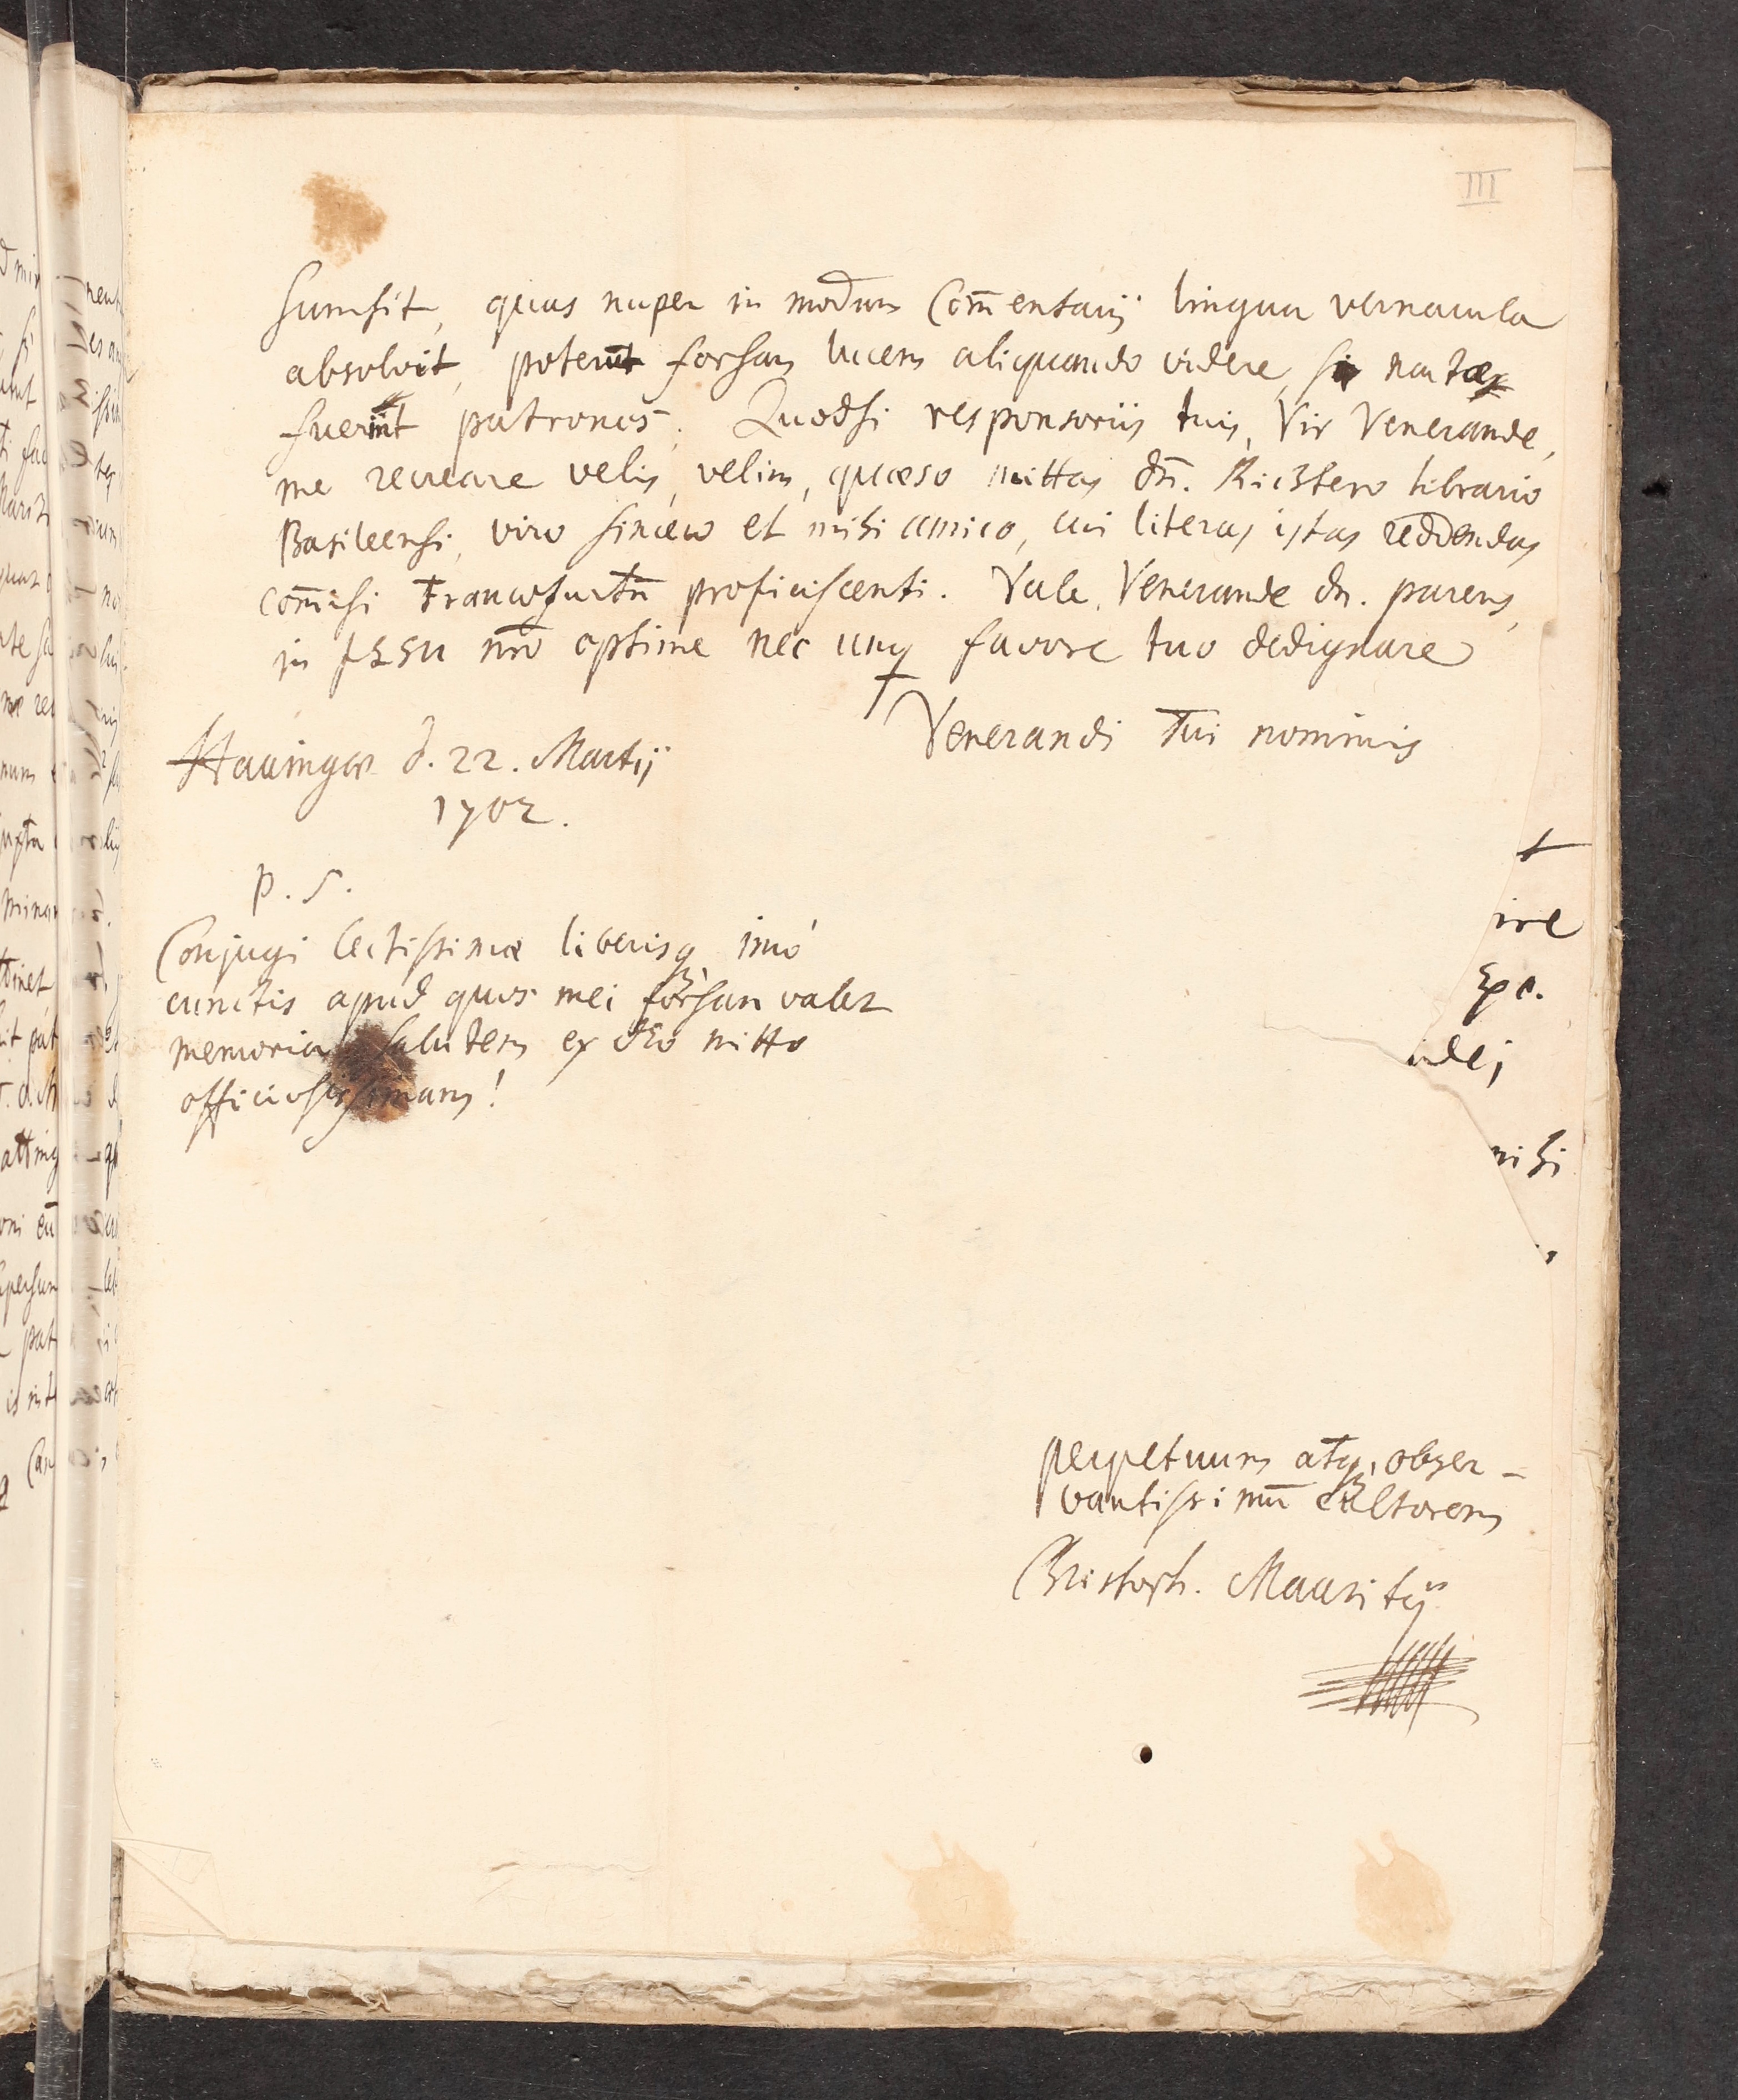 III
sumsit, quas nuper in modum Com̄entarij lingua vernacula
absolvit, poterūt forsan lucem aliquando videre, si nactæ
fuerint patronos. Quodsi responsoriis tuis, Vir Venerande,
me recreare velis, velim, quæso mittas dn̄. Richtero librario
Basileensi, viro sincero et mihi amico, cui literas istas reddendas
com̄isi Francofurtū proficiscenti. Vale, Venerande dn. parens,
in JESSU nr̄o optime nec unq favore tuo dedignare
Venerandi Tui nominis
d. 22. Martij
1702.
P. S.
Conjugi lectissimæ liberisq3, imò
cunctis apud quos mei forsan valet
memoria salutem ex deo mitto
officiosissimam!
ire
Epc.
idei
nihi
perpetuum atq3, obser-
vantissimū cultorem
Christoph. Mauritij